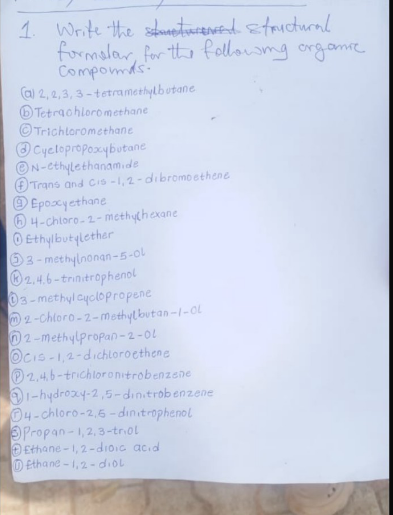 1. Write the structural
formular for the following organic
compounds.
(a) 2,2,3,3-tetramethylbutane
(b) Tetrachloromethane
(c) Trichloromethane
(d) Cyclopropoxybutane
(e) N-ethylethanamide
(f) Trans and Cis-1,2-dibromoethene
(g) Epoxyethane
(h) 4-chloro-2-methylhexane
(i) Ethylbutylether
(j) 3-methylnonan-5-ol
(k) 2,4,6-trinitrophenol
(l) 3-methylcyclopropene
(m) 2-chloro-2-methylbutan-1-ol
(n) 2-methylpropan-2-ol
(o) Cis-1,2-dichloroethene
(p) 2,4,6-trichloronitrobenzene
(q) 1-hydroxy-2,5-dinitrobenzene
(r) 4-chloro-2,5-dinitrophenol
(s) Propan-1,2,3-triol
(t) Ethane-1,2-dioic acid
(u) Ethane-1,2-diol